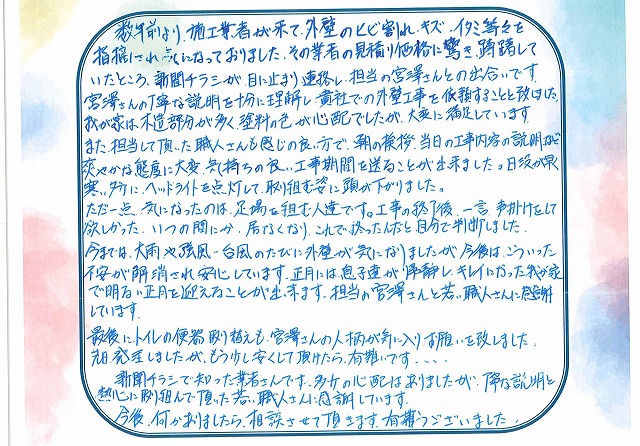 数年前より、施工業者が来て、外壁のヒビ割れ、キズ、イタミ等々を
指摘され気になっておりました。その業者の見積り価格に驚き、躊躇して
いたところ、新聞チラシが目に止まり連絡し、担当の宮澤さんとの出合いです。
宮澤さんの丁寧な説明を十分に理解し貴社での外壁工事を依頼することと改ました。
我が家は木造部分が多く、塗料の色が心配でしたが、大変に満足しています
また、担当して頂いた職人さんも感じの良い方で、朝の挨拶、当日の工事内容の説明など
爽やかな態度に大変、気持ちの良い工事期間を送ることが出来ました。日没が早
寒い夕方に、ヘッドライトを点灯して、取り組む姿に頭が下がりました。
ただ一点、気になったのは、足場を組む人達です。工事の終了後、一言、声掛けをして
欲しかった、いつの間にか、居なくなり、これで終ったんだと自分で判断しました。
今までは、大雨や強風・台風のたびに外壁が気になりましたが今後は、こういった
不安が解消され安心しています。正月には息子達が帰静し、キレイになった我が家
で明るい正月を迎えることが出来ます。担当の宮澤さんと若い職人さんに感謝
しています。
最後に、トイレの便器取り替えも、宮澤さんの人柄が気に入りお願いを致しました。
先日、発注しましたが、もう少し安くして頂けたら、有難いです....
新聞チラシで知った業者さんです。多少の心配はありましたが、丁寧な説明と
熱心に取り組んで頂いた若い職人さんに感謝しています。
今後、何かありましたら、相談させて頂きます、有難うございました。